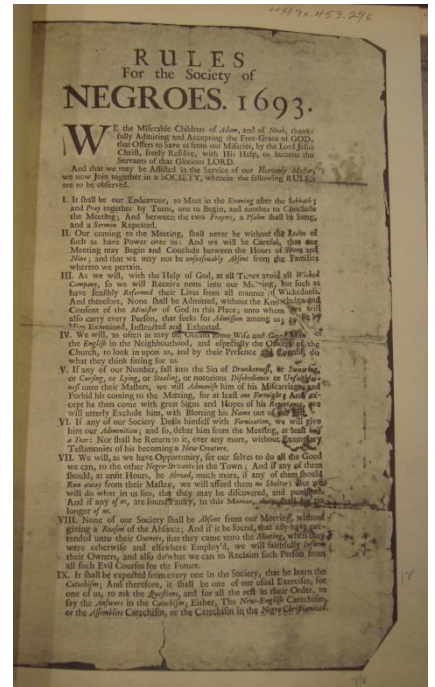 RULES
For the Society of
NEGROES. 1693.
WE the Miserable Children of Adam, and of Noah, thank-
fully Admiring and Accepting the Free-Grace of GOD,
that Offers to Save us from our Miseries, by the Lord Jesus
Christ, freely Resolve, with His Help, to become the
Servants of that Glorious LORD.
And that we may be Assisted in the Service of our Heavenly Master,
we now Join together in a SOCIETY, wherein the following RULES
are to be observed.
I. It shall be our Endeavour, to Meet in the Evening after the Sabbath;
and Pray together by Turns, one to Begin, and another to Conclude
the Meeting; And between the two Prayers, a Psalm shall be Sung,
and a Sermon Repeated.
II. Our coming to the Meeting, shall never be without the Leave of
such as have Power over us: And we will be Careful, that our
Meeting may Begin and Conclude between the Hours of Seven and
Nine; and that we may not be unseasonably Absent from the Families
whereto we pertain.
III. As we will, with the Help of God, at all Times avoid all Wicked
Company, so we will Receive none into our Meeting, but such as
have sensibly Reformed their Lives from all manner of Wickedness.
And therefore, None shall be Admitted, without the Knowledge and
Consent of the Minister of God in this Place; unto whom we will
also carry every Person, that seeks for Admission among us; to be by
Him Examined, Instructed and Exhorted.
IV. We will, as often as may be, Obtain some Wise and Good Man, of
the English in the Neighbourhood, and especially the Officers of the
Church, to look in upon us, and by their Presence and Counsil, do
what they think fitting for us.
V. If any of our Number, fall into the Sin of Drunkenness, or Swearing,
or Cursing, or Lying, or Stealing, or notorious Disobedience or Unfaithful-
ness unto their Masters, we will Admonish him of his Miscarriage, and
Forbid his coming to the Meeting, for at least one Fortnight; And ex-
cept he then come with great Signs and Hopes of his Repentance, we
will utterly Exclude him, with Blotting his Name out of our
VI. If any of our Society Defile himself with Fornication, we will give
him our Admonition; and so, debar him from the Meeting, at least half
a Year: Nor shall he Return to it, ever any more, without Exemplary
Testimonies of his becoming a New Creature.
VII. We will, as we have Opportunity, set our selves to do all the Good
we can, to the other Negro-Servants in the Town; And if any of them
should, at unfit Hours, be Abroad, much more, if any of them should
Run away from their Masters, we will afford them no Shelter: But we
will do what in us lies, that they may be discovered, and punished.
And if any of us, are found Faulty, in this Matter, they shall be no
longer of us.
VIII. None of our Society shall be Absent from our Meeting, without
giving a Reason of the Absence; And if it be found, that any have pre-
tended unto their Owners, that they came unto the Meeting, when they
were otherwise and elsewhere Employ'd, we will faithfully Inform
their Owners, and also do what we can to Reclaim such Person from
all such Evil Courses for the Future.
IX. It shall be expected from every one in the Society, that he learn the
Catechism; And therefore, it shall be one of our usual Exercises, for
one of us, to ask the Questions, and for all the rest in their Order, to
say the Answers in the Catechism; Either, The New-English Catechism,
or the Assemblies Catechism, or the Catechism in the Negro Christianized.